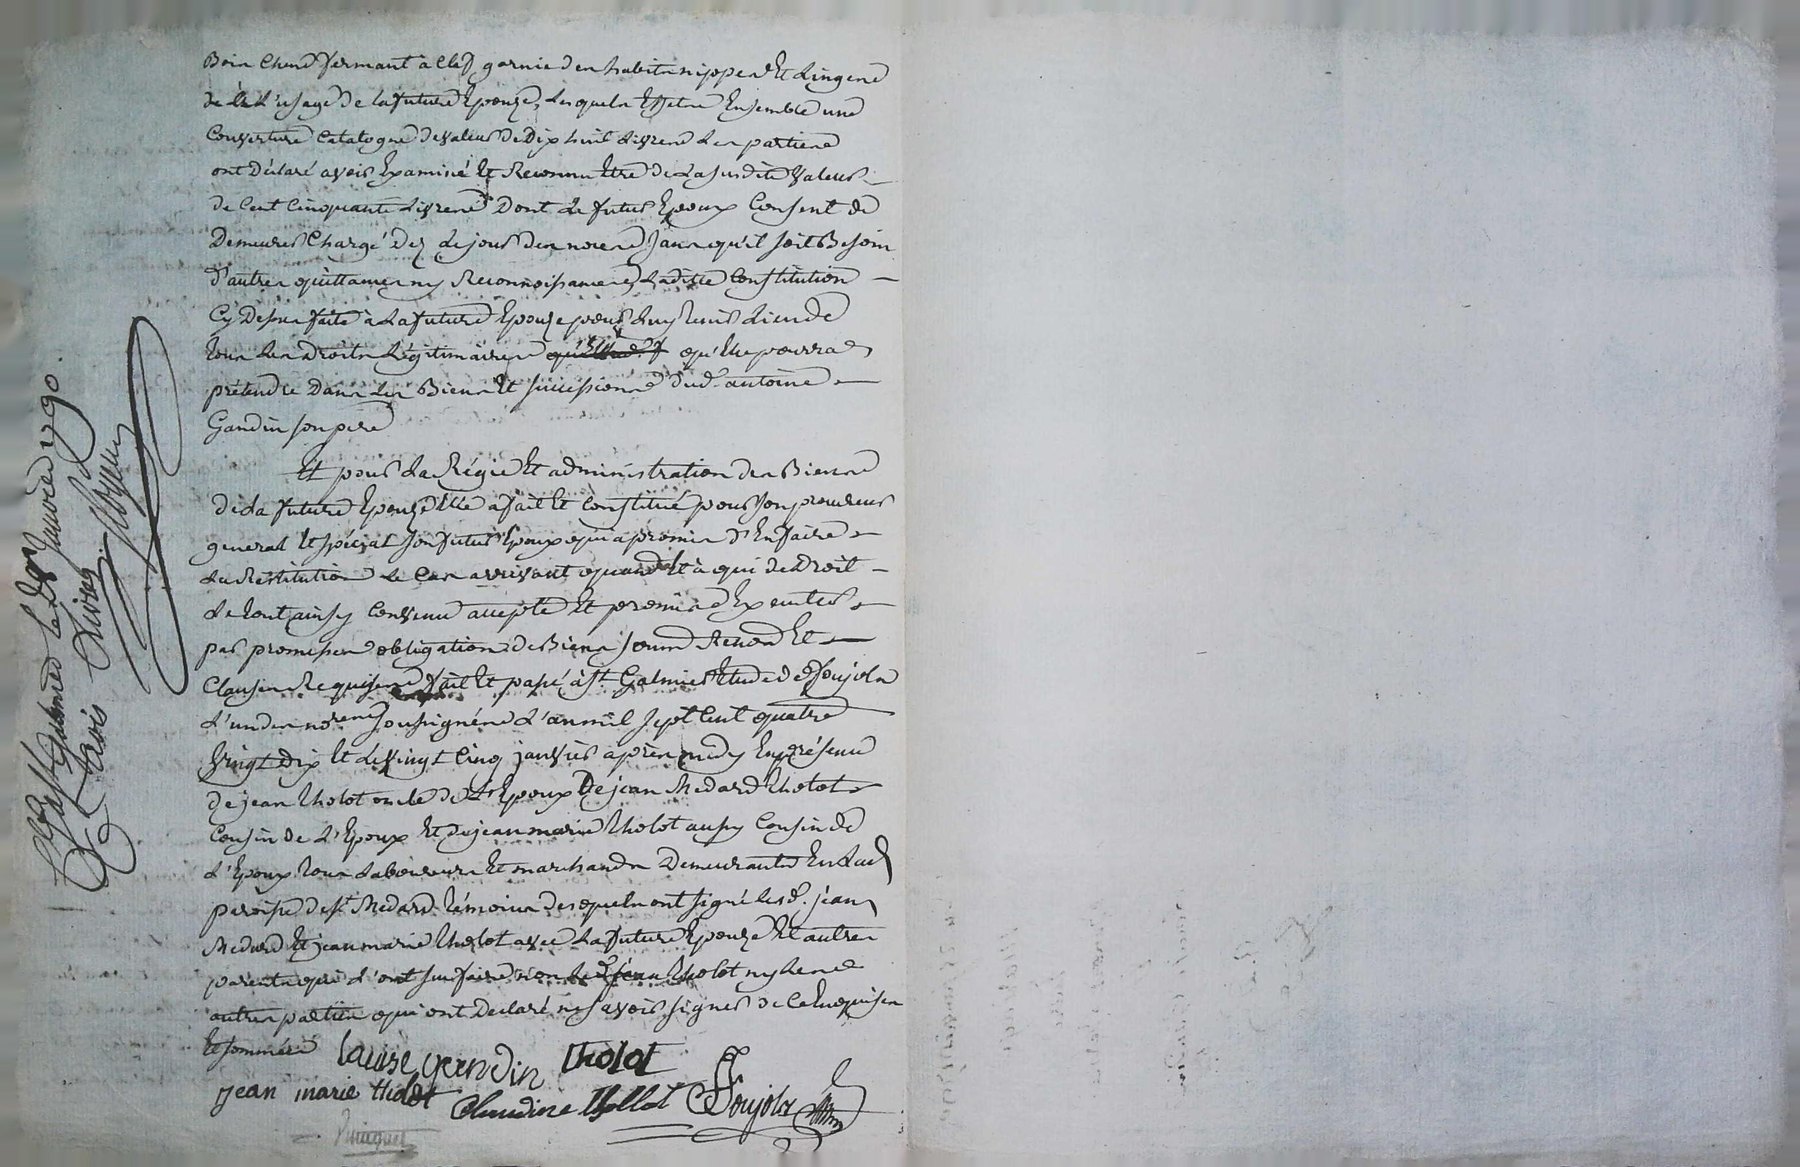 Bois chene fermant à clef garnie des habits nippes et linges
de l'usage de la future Epouze, lesquels Effets Ensemble une
Couverture Catalogne de valeur de Dix huit Livres les parties
ont Déclaré avoir Examiné et Reconnu Etre de la susdite valeur
de Cent Cinquante Livres Dont le futur Epoux Consent de
Demeurer Chargé Dez le jour des noces sans qu'il soit Besoin
d'autres quittances ny Reconnoissances, Ladite Constitution
Cy Dessus faite à La future Epouze pour luy tenir Lieu de
tous les Droits Légitimaires qu'Elle pourra
prétendre Dans les Biens et successions dud. antoine
Gandin son pere
Et pour La Régie Et administration des Biens
de la future Epouze Elle a fait et Constitué pour son procureur
general et spécial son futur Epoux qui a promis d'En faire
La Restitution le Cas arrivant quand Et à qui de Droit
le tout ainsy Convenu accepté Et promis Executer
par promesses obligation de Biens soum. Renon. Et
Clauses Requises fait Et passé à St. Galmier Etude de Soujols
L'un des no.res soussignés L'an mil sept Cent quatre
Vingt Dix et le Vingt Cinq janvier après midy En présence
de jean tholot oncle de l'Epoux De jean Medard tholot
Cousin de L'Epoux Et de jean marie tholot aussy Cousin de
L'Epoux tous Laboureurs Et marchands Demeurants En lad.
paroisse de St. Medard témoins desquels ont signé lesd. jean
Medard Et jean marie tholot avec La future Epouze Et autres
parents qui L'ont su faire non led. jean tholot ny les
autres parties qui ont Declaré ne savoir signer de Ce Enquises
Et sommées
Louise gandin tholot
jean marie tholot Claudine thollot Soujols
galmier le janvier 1790.
trois Livres